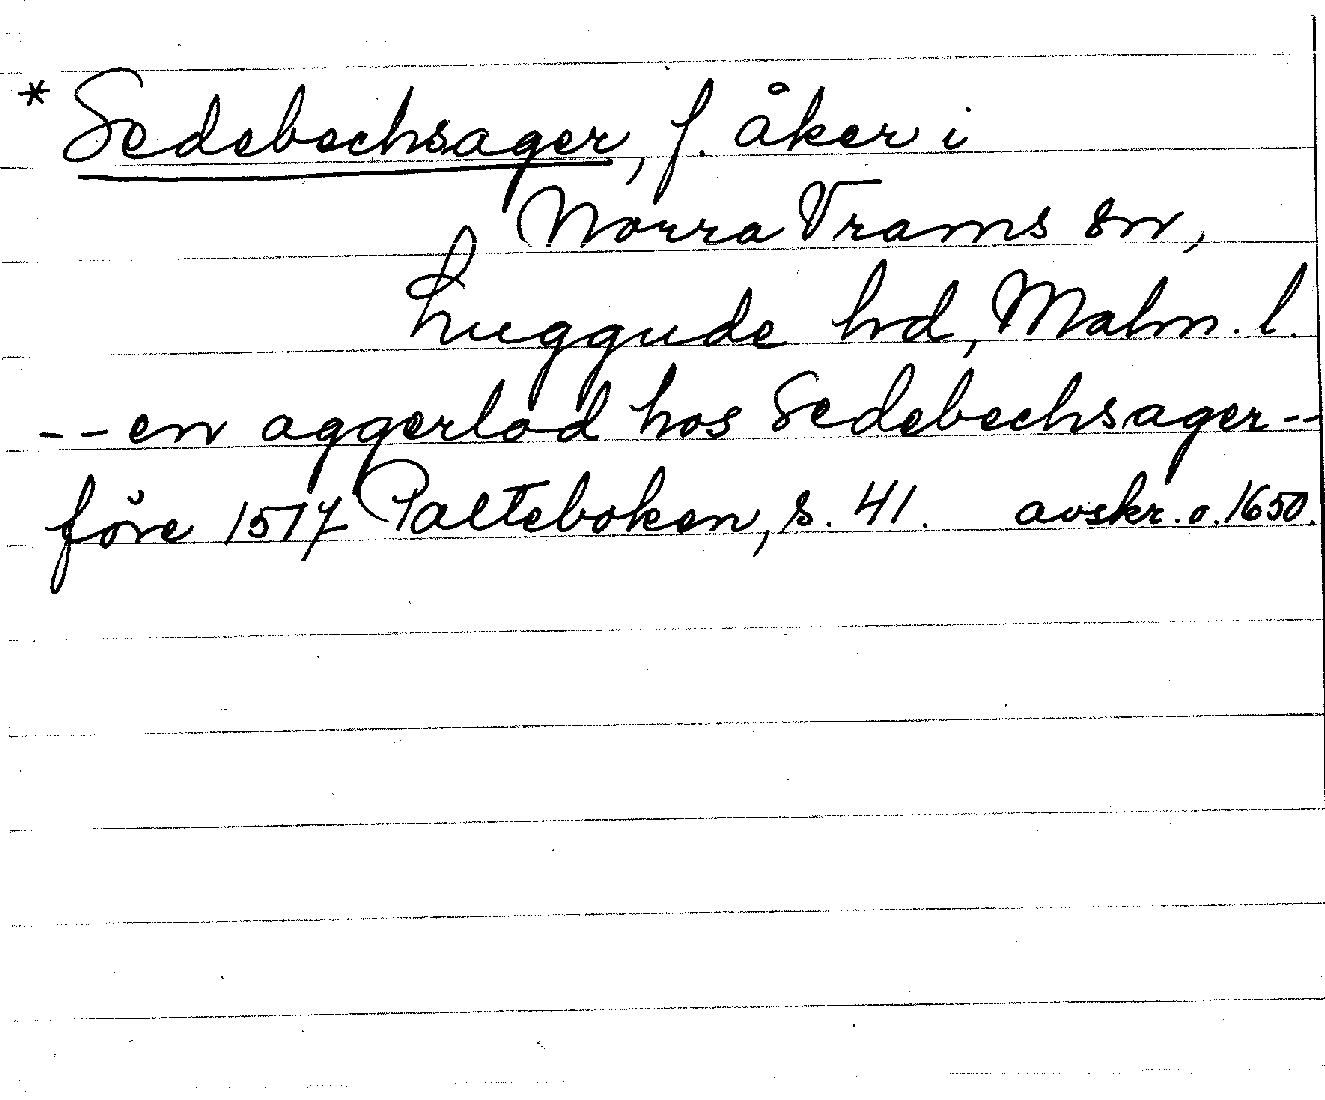 * Sedebechsager, f. åker i
Norra Vrams sn,
Luggude hd, Malm. l.
-- en aggerlod hos Sedebechsager --
före 1517 Palteboken, s. 41. avskr. o. 1650.